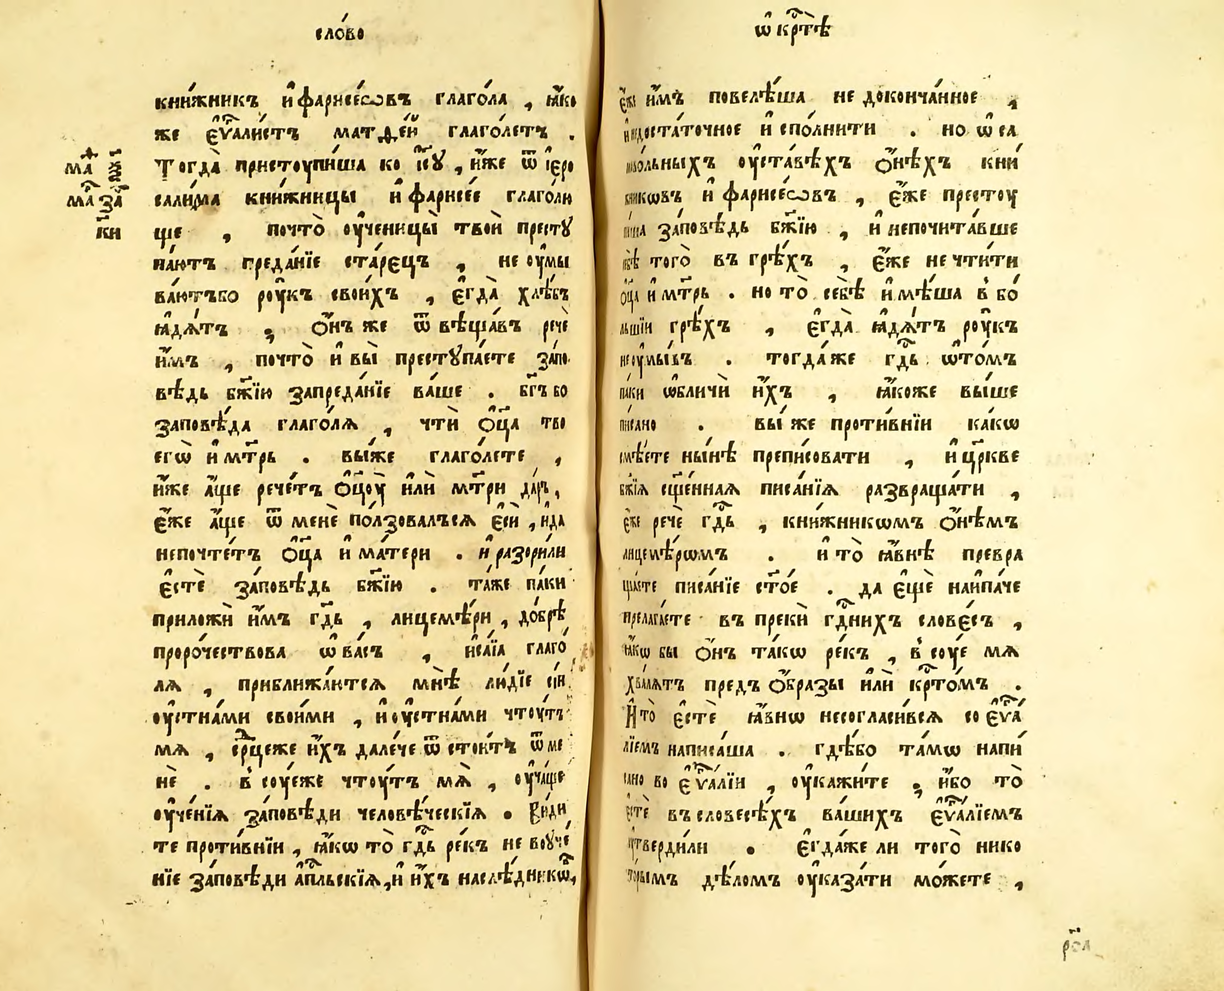 сло́во
кни́жникъ и҆ фарисе́ѡвъ глаго́ла , ꙗ҆́ко
же є҆ѵⷢ҇алистъ матѳе́й глаго́летъ .
Тогда̀ пристоупи́ша ко і҆сꙋ , и҆́же ѿ і҆еро
сали́ма кни́жницы и҆ фарисе́е глаго́лю
ще , почто̀ оу҆ченицы̀ твоѝ престꙋ
па́ютъ преда́нїе ста́рєцъ , не оу҆мы
ва́ютъбо роу́къ свои́хъ , є҆гда̀ хлѣ́бъ
ꙗ҆дѧ́тъ , ѻ҆́нъ же ѿвѣща́въ речѐ
и҆̀мъ , почто̀ и҆ вы̀ престꙋпа́ете за́по
вѣдь бж҃їю запреда́нїе ва́ше . бг҃ъ бо
заповѣ́да глаго́лѧ , чтѝ ѻ҆ц҃а̀ тво
егѡ̀ и҆ мт҃рь . вы́же глаго́лете ,
и҆́же а҆́ще рече́тъ ѻ҆ц҃оу̀ и҆лѝ мт҃ри да́ръ ,
є҆́же а҆́ще ѿ менѐ по́лзовалъсѧ є҆сѝ , и҆да
непочте́тъ ѻ҆ц҃а̀ и҆ ма́тери . и҆ разори́ли
є҆стѐ за́повѣдь бж҃їю . та́же па́ки
приложѝ и҆̀мъ гд҇ь , лицемѣ́ри , до́брѣ
проро́чествова ѡ҆ ва́съ , и҆са́їа глаго́
лѧ , приближа́ютсѧ мнѣ̀ лю́дїе сїѝ
оу҆стна́ми свои́ми , и҆ оу҆стна́ми чтоу́тъ
мѧ̀ , срⷣцеже и҆́хъ дале́че ѿ стои́тъ ѿ ме
нѐ . в̾ соу́еже чтоу́тъ мѧ̀ , оу҆ча́ще
оу҆че́нїѧ за́повѣди человѣ́ческїѧ . Види
те проти́внїи , ꙗ҆́кѡ то̀ гд҇ь ре́къ не воуче́
нїе за́повѣди а҆пⷭ҇льскїѧ , и҆ и҆́хъ наслѣ́дникѡⷡ҇ ,
ма ⷴ
за҃
маⷬ҇ за҃
к҃и
ѡ҆ крⷭ҇тѣ
є҆́же и҆̀мъ повелѣ́ша не доконча́нное ,
и҆ недоста́точное и҆сполни́ти . но ѡ҆ са
мово́льныхъ оу҆ста́вѣхъ ѻ҆́нѣхъ кни́
жникѡвъ и҆ фарисе́ѡвъ , є҆́же престоу
пи́ша за́повѣдь бж҃їю , и҆ непочита́вше
бѣ̀ того̀ въ грѣ́хъ , є҆́же не чти́ти
ѻ҆ц҃а и҆ мт҃рь . но то̀ себѣ̀ и҆мѣ́ша в̾ бо́
льшїи грѣ́хъ , є҆гда̀ ꙗ҆дѧ́тъ роу́къ
неоу҆мы́въ . тогда́же гд҇ь ѡ҆то́мъ
па́ки ѡ҆бличѝ и҆́хъ , ꙗ҆́коже вы́ше
пи́сано . вы́ же проти́внїи ка́кѡ
смѣ́ете ны́нѣ преписовати , и҆ цр҃кве
бж҃їѧ сщ҃е́ннаѧ писа́нїѧ развраща́ти ,
є҆́же речѐ гд҇ь , кни́жникѡмъ ѻ҆́нѣмъ
лицемѣ́рѡмъ . и҆ то̀ ꙗ҆́внѣ превра
ща́ете писа́нїе ст҃о́е . да є҆щѐ наипа́че
прелага́ете въ прекѝ гдⷭ҇нихъ слове́съ ,
ꙗ҆́кѡ бы ѻ҆́нъ та́кѡ ре́къ , в̾ соу́е мѧ̀
хва́лѧтъ предъ ѻ҆́бразы и҆лѝ крⷭ҇то́мъ .
И҆ то̀ є҆стѐ ꙗ҆́внѡ несогласи́всѧ со є҆ѵⷢ҇а́
лїемъ написа́ша . гдѣ́бо та́мѡ напи́
сано во є҆ѵⷢ҇а́лїи , оу҆кажи́те , и҆́бо то̀
є҆стѐ въ словесѣ́хъ ва́шихъ є҆ѵⷢ҇а́лїемъ
оу҆тверди́ли . є҆гда́же ли того̀ нико
то́рымъ дѣ́ломъ оу҆каза́ти мо́жете ,